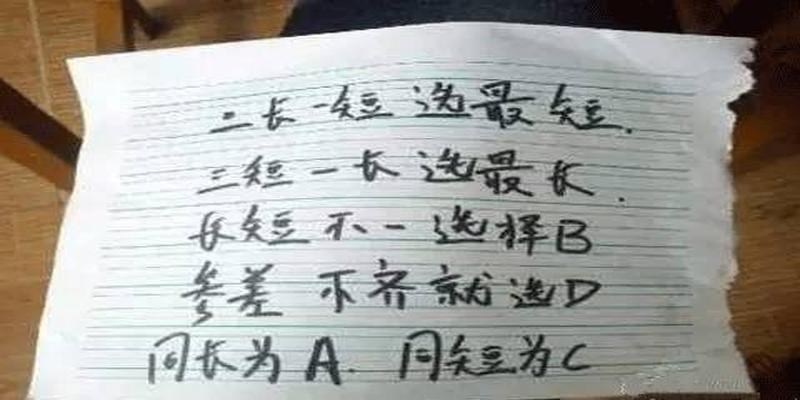 二长一短选最短.
三短一长选最长.
长短不一选择B
参差不齐就选D
同长为A. 同短为C